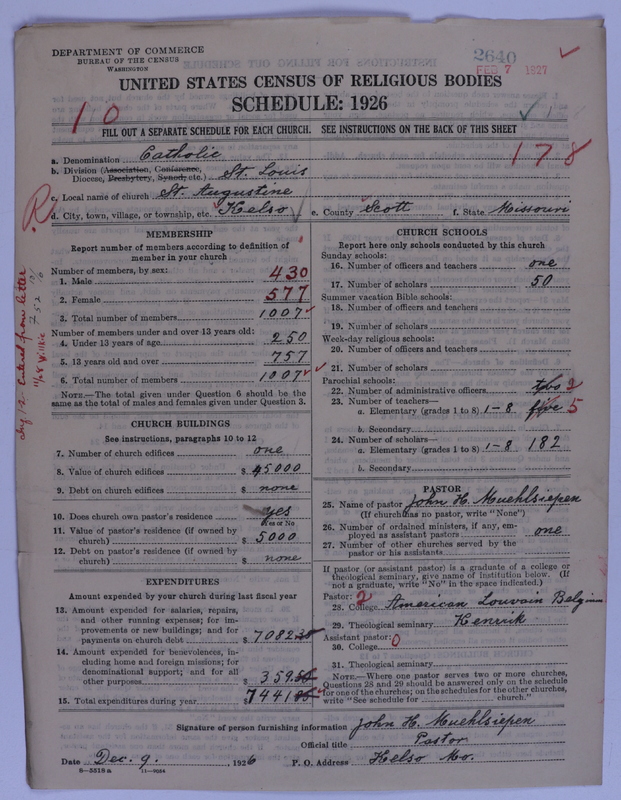 DEPARTMENT OF COMMERCE
BUREAU OF THE CENSUS
WASHINGTON
2640
FEB 7 1927
UNITED STATES CENSUS OF RELIGIOUS BODIES
SCHEDULE: 1926
10
FILL OUT A SEPARATE SCHEDULE FOR EACH CHURCH. SEE INSTRUCTIONS ON THE BACK OF THIS SHEET
178
a. Denomination Catholic
b. Division (Association, Conference,
Diocese, Presbytery, Synod, etc.) St. Louis
c. Local name of church St. Augustine
d. City, town, village, or township, etc. Kelso e. County Scott f. State Missouri
R
MEMBERSHIP
Report number of members according to definition of
member in your church
Number of members, by sex:
1. Male 430
2. Female 577
3. Total number of members 1007
Number of members under and over 13 years old:
4. Under 13 years of age 250
5. 13 years old and over 757
6. Total number of members 1007
NOTE.—The total given under Question 6 should be
same as the total of males and females given under Question 3.
Entered from letter
CHURCH BUILDINGS
See instructions, paragraphs 10 to 12
7. Number of church edifices one
8. Value of church edifices $ 45000
9. Debt on church edifices $ none
10. Does church own pastor's residence yes
Yes or No
11. Value of pastor's residence (if owned by
church) $ 5000
12. Debt on pastor's residence (if owned by
church) $ none
EXPENDITURES
Amount expended by your church during last fiscal year
13. Amount expended for salaries, repairs,
and other running expenses; for im-
provements or new buildings; and for
payments on church debt $ 7082
14. Amount expended for benevolences, in-
cluding home and foreign missions; for
denominational support; and for all
other purposes $ 359
15. Total expenditures during year $ 7441
CHURCH SCHOOLS
Report here only schools conducted by this church
Sunday schools:
16. Number of officers and teachers one
17. Number of scholars 50
Summer vacation Bible schools:
18. Number of officers and teachers
19. Number of scholars
Week-day religious schools:
20. Number of officers and teachers
21. Number of scholars
Parochial schools:
22. Number of administrative officers two 2
23. Number of teachers—
a. Elementary (grades 1 to 8) 1-8 five 5
b. Secondary
24. Number of scholars—
a. Elementary (grades 1 to 8) 1-8 182
b. Secondary
PASTOR
25. Name of pastor John H. Muehlsiepen
(If church has no pastor, write "None")
26. Number of ordained ministers, if any, em-
ployed as assistant pastors one
27. Number of other churches served by the
pastor or his assistants
If pastor (or assistant pastor) is a graduate of a college or
theological seminary, give name of institution below. (If
not a graduate, write "No" in the space indicated.)
Pastor: 2
28. College American Louvain Belgium
29. Theological seminary Kenrick
Assistant pastor: 0
30. College
31. Theological seminary
NOTE.—Where one pastor serves two or more churches,
Questions 28 and 29 should be answered only on the schedule
for one of the churches; on the schedules for the other churches,
write "See schedule for church."
Signature of person furnishing information John H. Muehlsiepen
Official title Pastor
Date Dec. 9. 1926 P. O. Address Kelso Mo.
8-5518a 11-9034